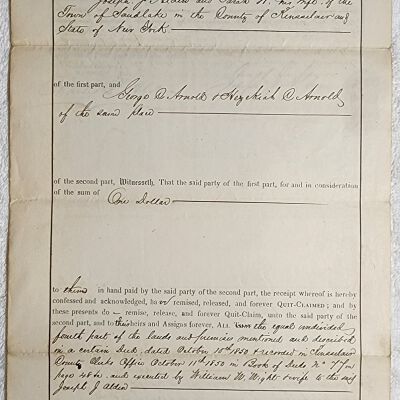 Joseph J. Alden and Sarah A. his wife, of the
Town of Sandlake in the County of Rensselaer and
State of New York
of the first part, and
George C Arnold & Hezekiah C Arnold
of the same place
of the second part, Witnesseth, That the said party of the first part, for and in consideration
of the sum of One Dollar
to them in hand paid by the said party of the second part, the receipt whereof is hereby
confessed and acknowledged, ha ve remised, released, and forever QUIT-CLAIMED; and by
these presents do remise, release, and forever Quit-Claim, unto the said party of the
second part, and to their heirs and Assigns forever, ALL the equal undivided
fourth part of the lands and premises mentioned and described
in a certain Deed, dated October 10th 1850 & recorded in Rensselaer
County Clerks Office October 11th 1850 in Book of Deeds No 77 on
page 486. and executed by William W. Wight & wife to the said
Joseph J Alden